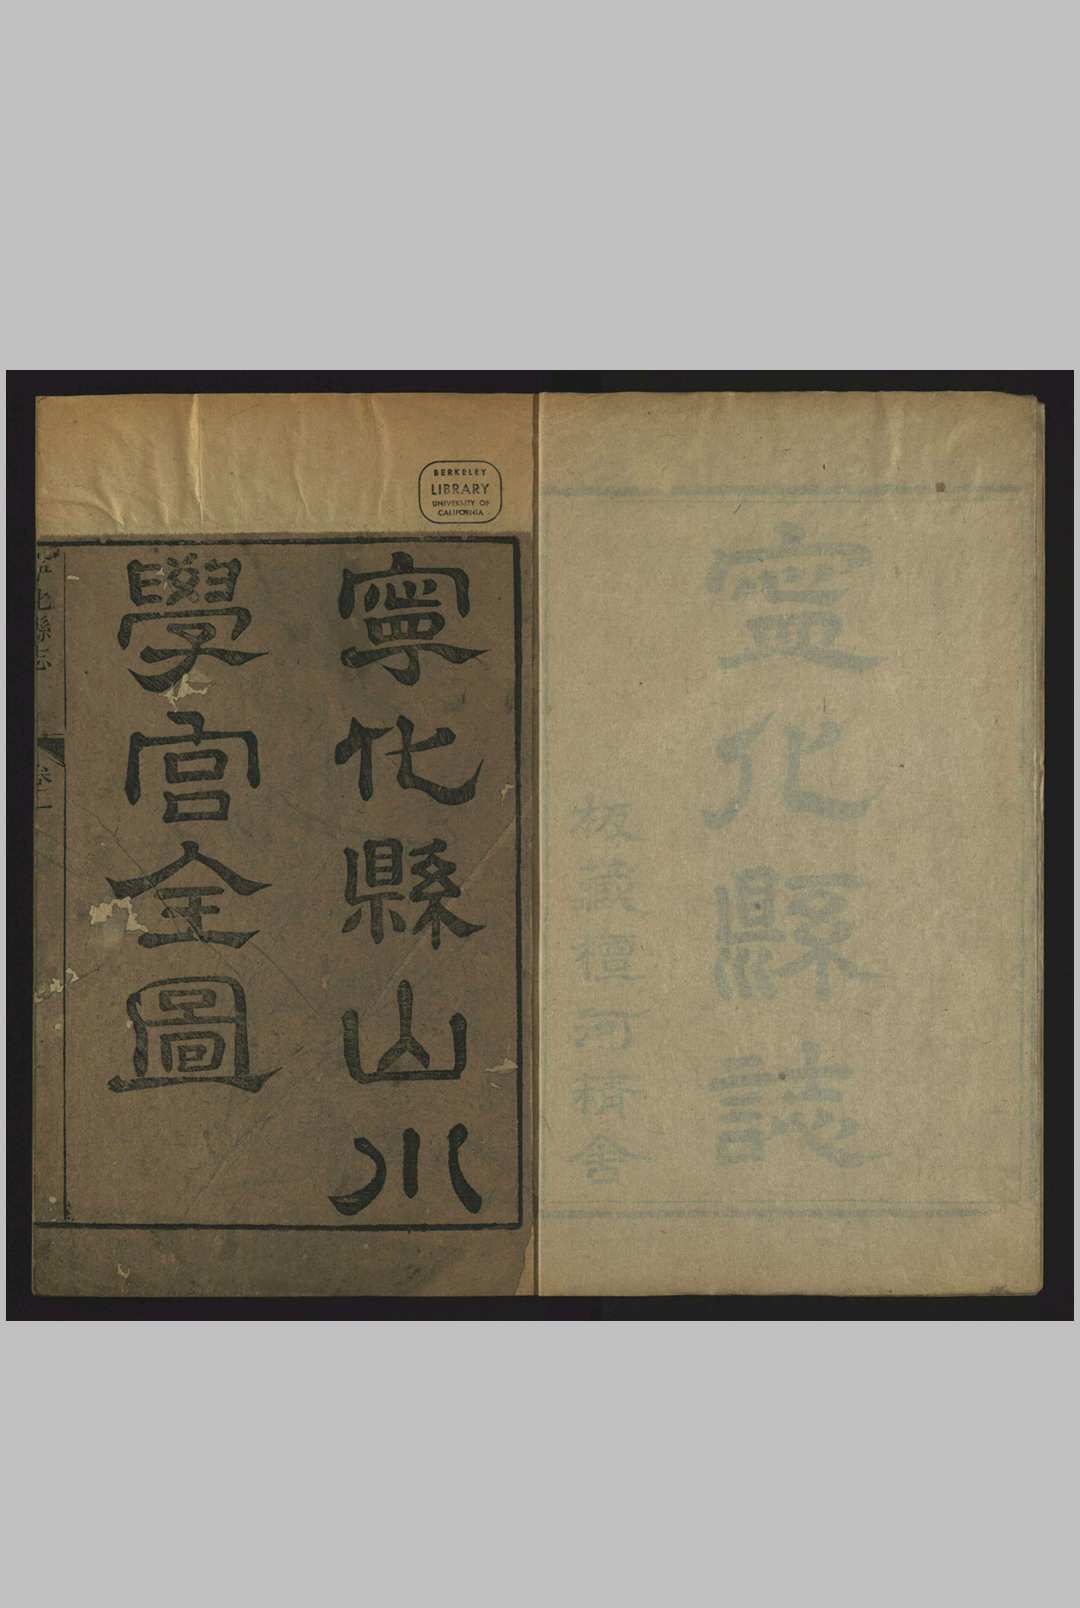 寧化縣誌
板藏檀河精舍
BERKELEY
LIBRARY
UNIVERSITY OF
CALIFORNIA
寧化縣山川
學宮全圖
化縣志
卷二